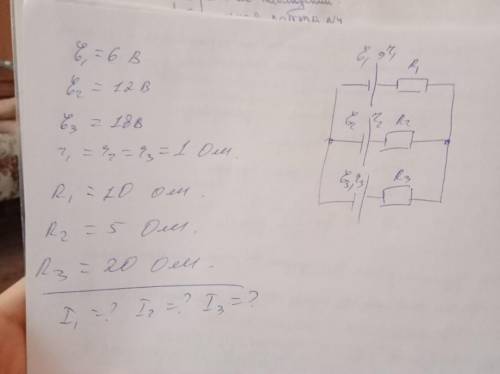 ℰ₁ = 6 В
ℰ₂ = 12 В
ℰ₃ = 18 В
r₁ = r₂ = r₃ = 1 Ом.
R₁ = 10 Ом.
R₂ = 5 Ом.
R₃ = 20 Ом.
I₁ = ? I₂ = ? I₃ = ?
ℰ₁ r₁ R₁
ℰ₂ r₂ R₂
ℰ₃, r₃ R₃